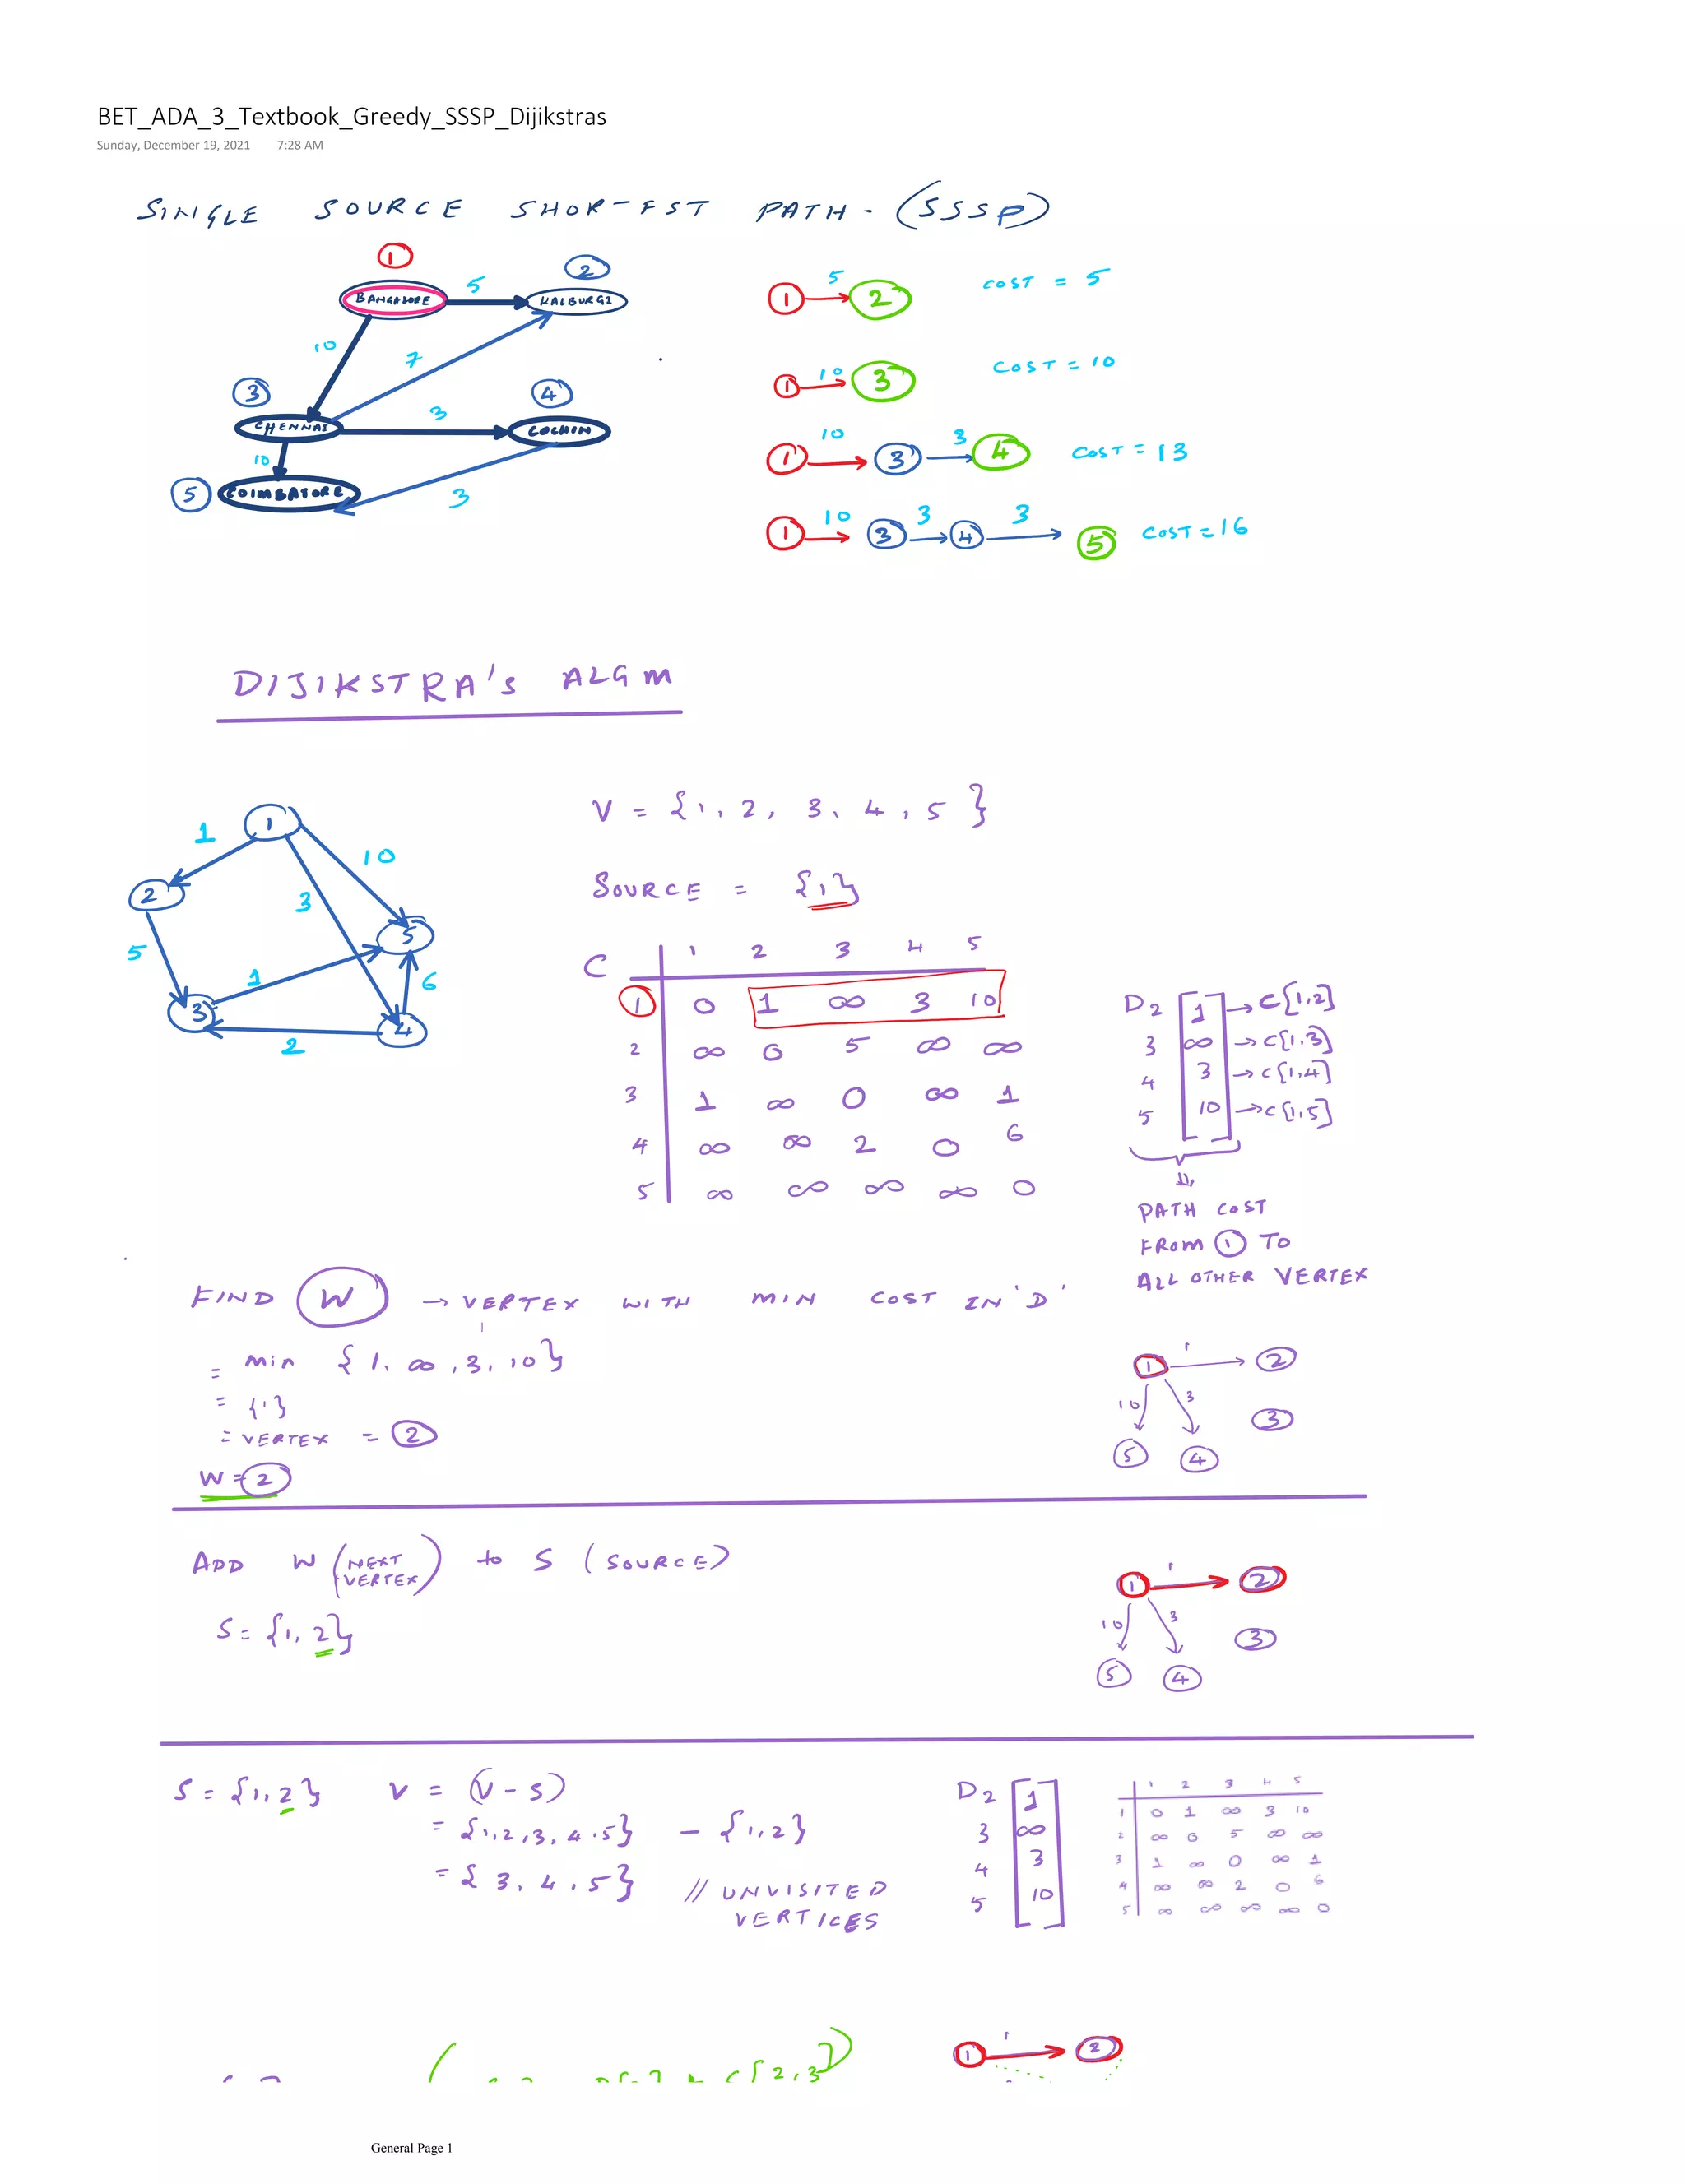 BET_ADA_3_Textbook_Greedy_SSSP_Dijikstras
Sunday, December 19, 2021 7:28 AM
SINGLE SOURCE SHORTEST PATH - (SSSP)
1
2
BANGALORE 5 KALBURGI
10
7
3
4
CHENNAI 3 COCHIN
10
5 COIMBATORE
3
1 5 2 COST = 5
1 10 3 COST = 10
1 10 3 3 4 COST = 13
1 10 3 3 4 3 5 COST = 16
DIJIKSTRA'S ALGM
1
1
10
2
3
5
5
1
6
3
4
2
V = {1, 2, 3, 4, 5}
SOURCE = {1}
C 1 2 3 4 5
1 0 1 ∞ 3 10
2 ∞ 0 5 ∞ ∞
3 1 ∞ 0 ∞ 1
4 ∞ ∞ 2 0 6
5 ∞ ∞ ∞ ∞ 0
D 2 1 → C[1,2]
3 ∞ → C[1,3]
4 3 → C[1,4]
5 10 → C[1,5]
PATH COST
FROM 1 TO
ALL OTHER VERTEX
FIND W → VERTEX WITH MIN COST IN 'D'
= min {1, ∞, 3, 10}
= {1}
= VERTEX = 2
W = 2
1 1 2
10 3
3
5 4
ADD W (NEXT VERTEX) to S (SOURCE)
S = {1, 2}
1 1 2
10 3
3
5 4
S = {1, 2} V = (V - S)
= {1, 2, 3, 4, 5} - {1, 2}
= {3, 4, 5} // UNVISITED
VERTICES
D 2 1
3 ∞
4 3
5 10
1 2 3 4 5
1 0 1 ∞ 3 10
2 ∞ 0 5 ∞ ∞
3 1 ∞ 0 ∞ 1
4 ∞ ∞ 2 0 6
5 ∞ ∞ ∞ ∞ 0
C[2,3]
1 1 2
General Page 1